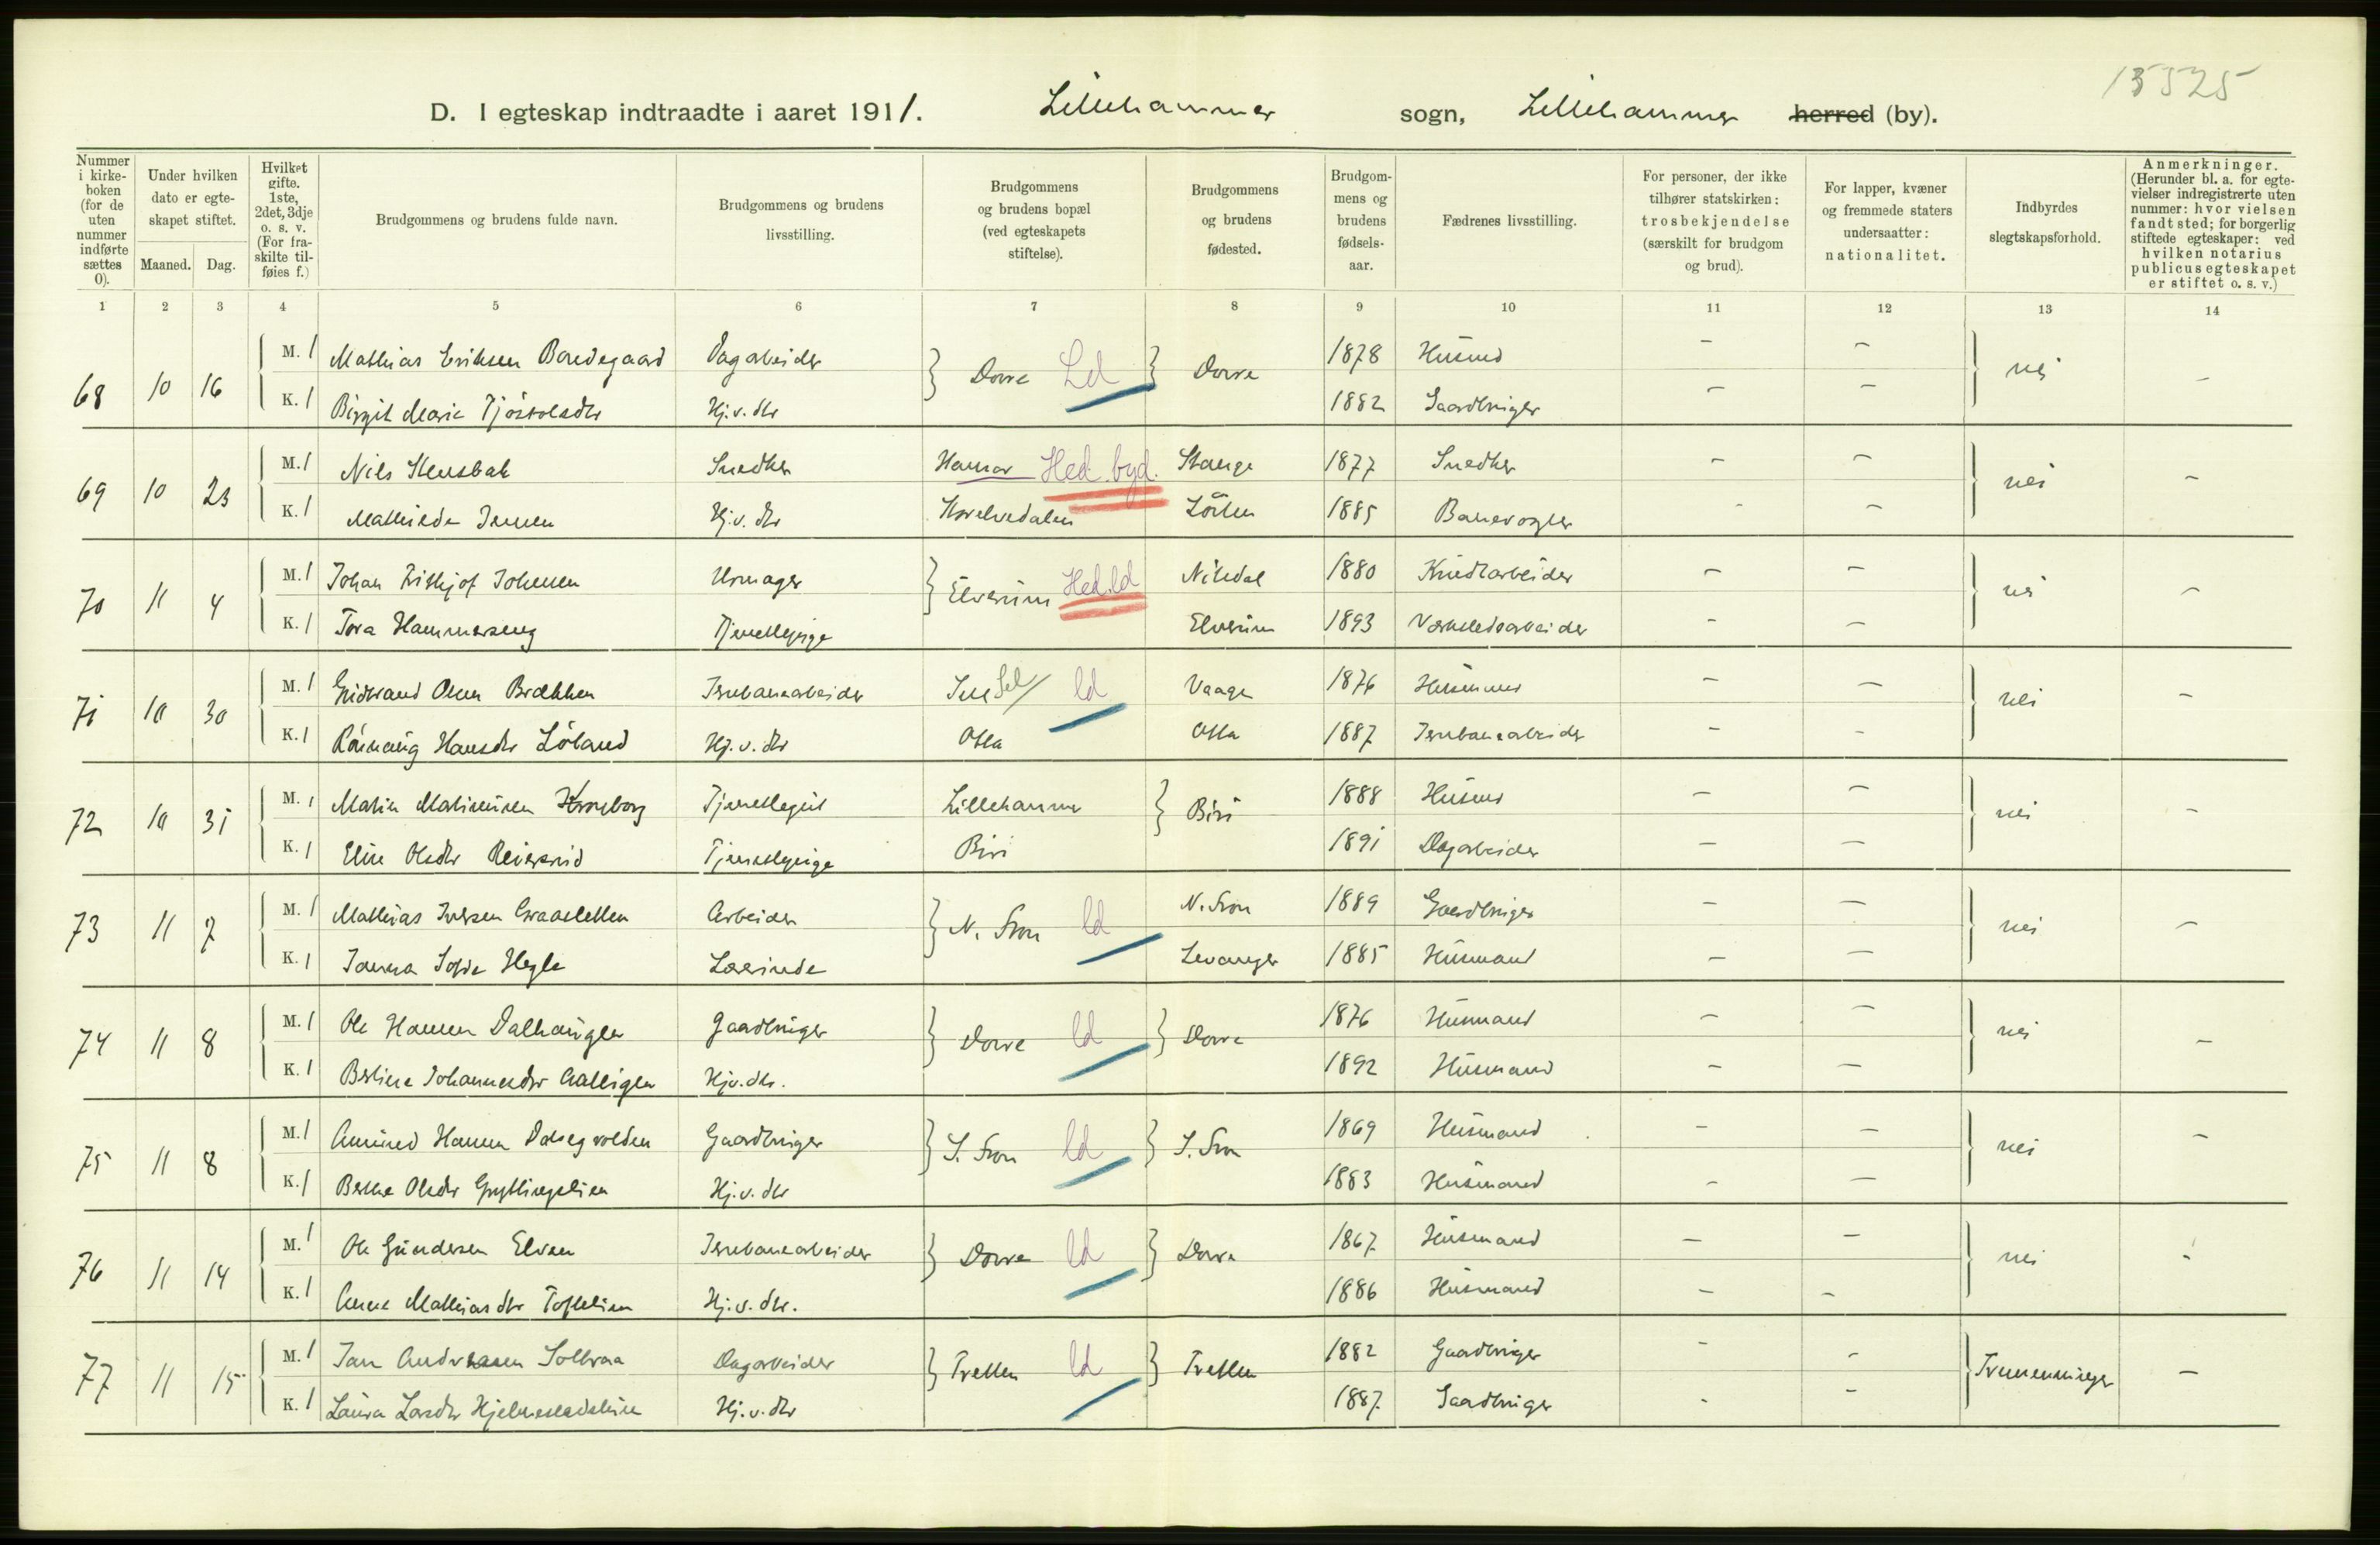 15525
D. I egteskap indtraadte i aaret 1911. Lillehammer sogn, Lillehammer herred (by).
Nummer i kirke-boken (for de uten nummer indførte sættes 0).
Under hvilken dato er egte-skapet stiftet.
Maaned. Dag.
Hvilket gifte. 1ste, 2det, 3dje o. s. v. (For fra-skilte til-føies f.)
Brudgommens og brudens fulde navn.
Brudgommens og brudens livsstilling.
Brudgommens og brudens bopæl (ved egteskapets stiftelse).
Brudgommens og brudens fødested.
Brudgom-mens og brudens fødsels-aar.
Fædrenes livsstilling.
For personer, der ikke tilhører statskirken: trosbekjendelse (særskilt for brudgom og brud).
For lapper, kvæner og fremmede staters undersaatter: nationalitet.
Indbyrdes slegtskapsforhold.
Anmerkninger. (Herunder bl. a. for egte-vielser indregistrerte uten nummer: hvor vielsen fandt sted; for borgerlig stiftede egteskaper: ved hvilken notarius publicus egteskapet er stiftet o. s. v.)
1 2 3 4 5 6 7 8 9 10 11 12 13 14
68 10 16 M. 1 Mathias Eriksen Bondegaard Dagarbeider Dovre Ld Dovre 1878 Husmd – – nei –
K. 1 Birgit Marie Hj.v. dtr 1882 Gaardbruger – –
69 10 23 M. 1 Nils Stensbak Snedker Hamar Hed. byd. Stange 1877 Snedker – – nei –
K. 1 Mathilde Jensen Hj.v. dtr Løiten 1885 Banevogter – –
70 11 4 M. 1 Johan Fritjof Johnsen Urmager Elverum Hed. ld Nitedal 1880 – – nei –
K. 1 Tora Hammerseng Tjenestepige Elverum 1893 Verkstedsarbeider – –
71 10 30 M. 1 Gudbrand Olsen Brækken Jernbanearbeider Sel ld Vaage 1876 Husmand – – nei –
K. 1 Rønnaug Hansdtr Løland Hj.v. dtr Otta Otta 1887 Jernbanearbeider – –
72 10 31 M. 1 Martin Martinusen Kronborg Tjenestegut Lillehammer Biri 1888 Husmd – – nei –
K. 1 Eline Olsdtr Tjenestepige Biri 1891 Dagarbeider – –
73 11 7 M. 1 Mathias Iversen Graasletten Arbeider N. Fron ld N. Fron 1889 Gaardbruger – – nei –
K. 1 Janna Sofie Hegle Lærerinde Levanger 1885 Husmand – –
74 11 8 M. 1 Ole Hansen Dalhaugen Gaardbruger Dovre ld Dovre 1876 Husmand – – nei –
K. 1 Berline Johannesdtr Hj.v. dtr. 1892 Husmand – –
75 11 8 M. 1 Amund Hansen Gaardbruger S. Fron ld S. Fron 1869 Husmand – – nei –
K. 1 Berthe Olsdtr Gryttingslien Hj.v. dtr 1883 Husmand – –
76 11 14 M. 1 Ole Gundersen Elven Jernbanearbeider Dovre ld Dovre 1867 Husmand – – nei –
K. 1 Anne Mathiasdtr Toftelien Hj.v. dtr. 1886 Husmand – –
77 11 15 M. 1 Jan Andreasen Solbraa Dagarbeider Tretten ld Tretten 1882 Gaardbruger – – Tremenninger –
K. 1 Laura Larsdtr Hj.v. dtr 1887 Gaardbruger – –